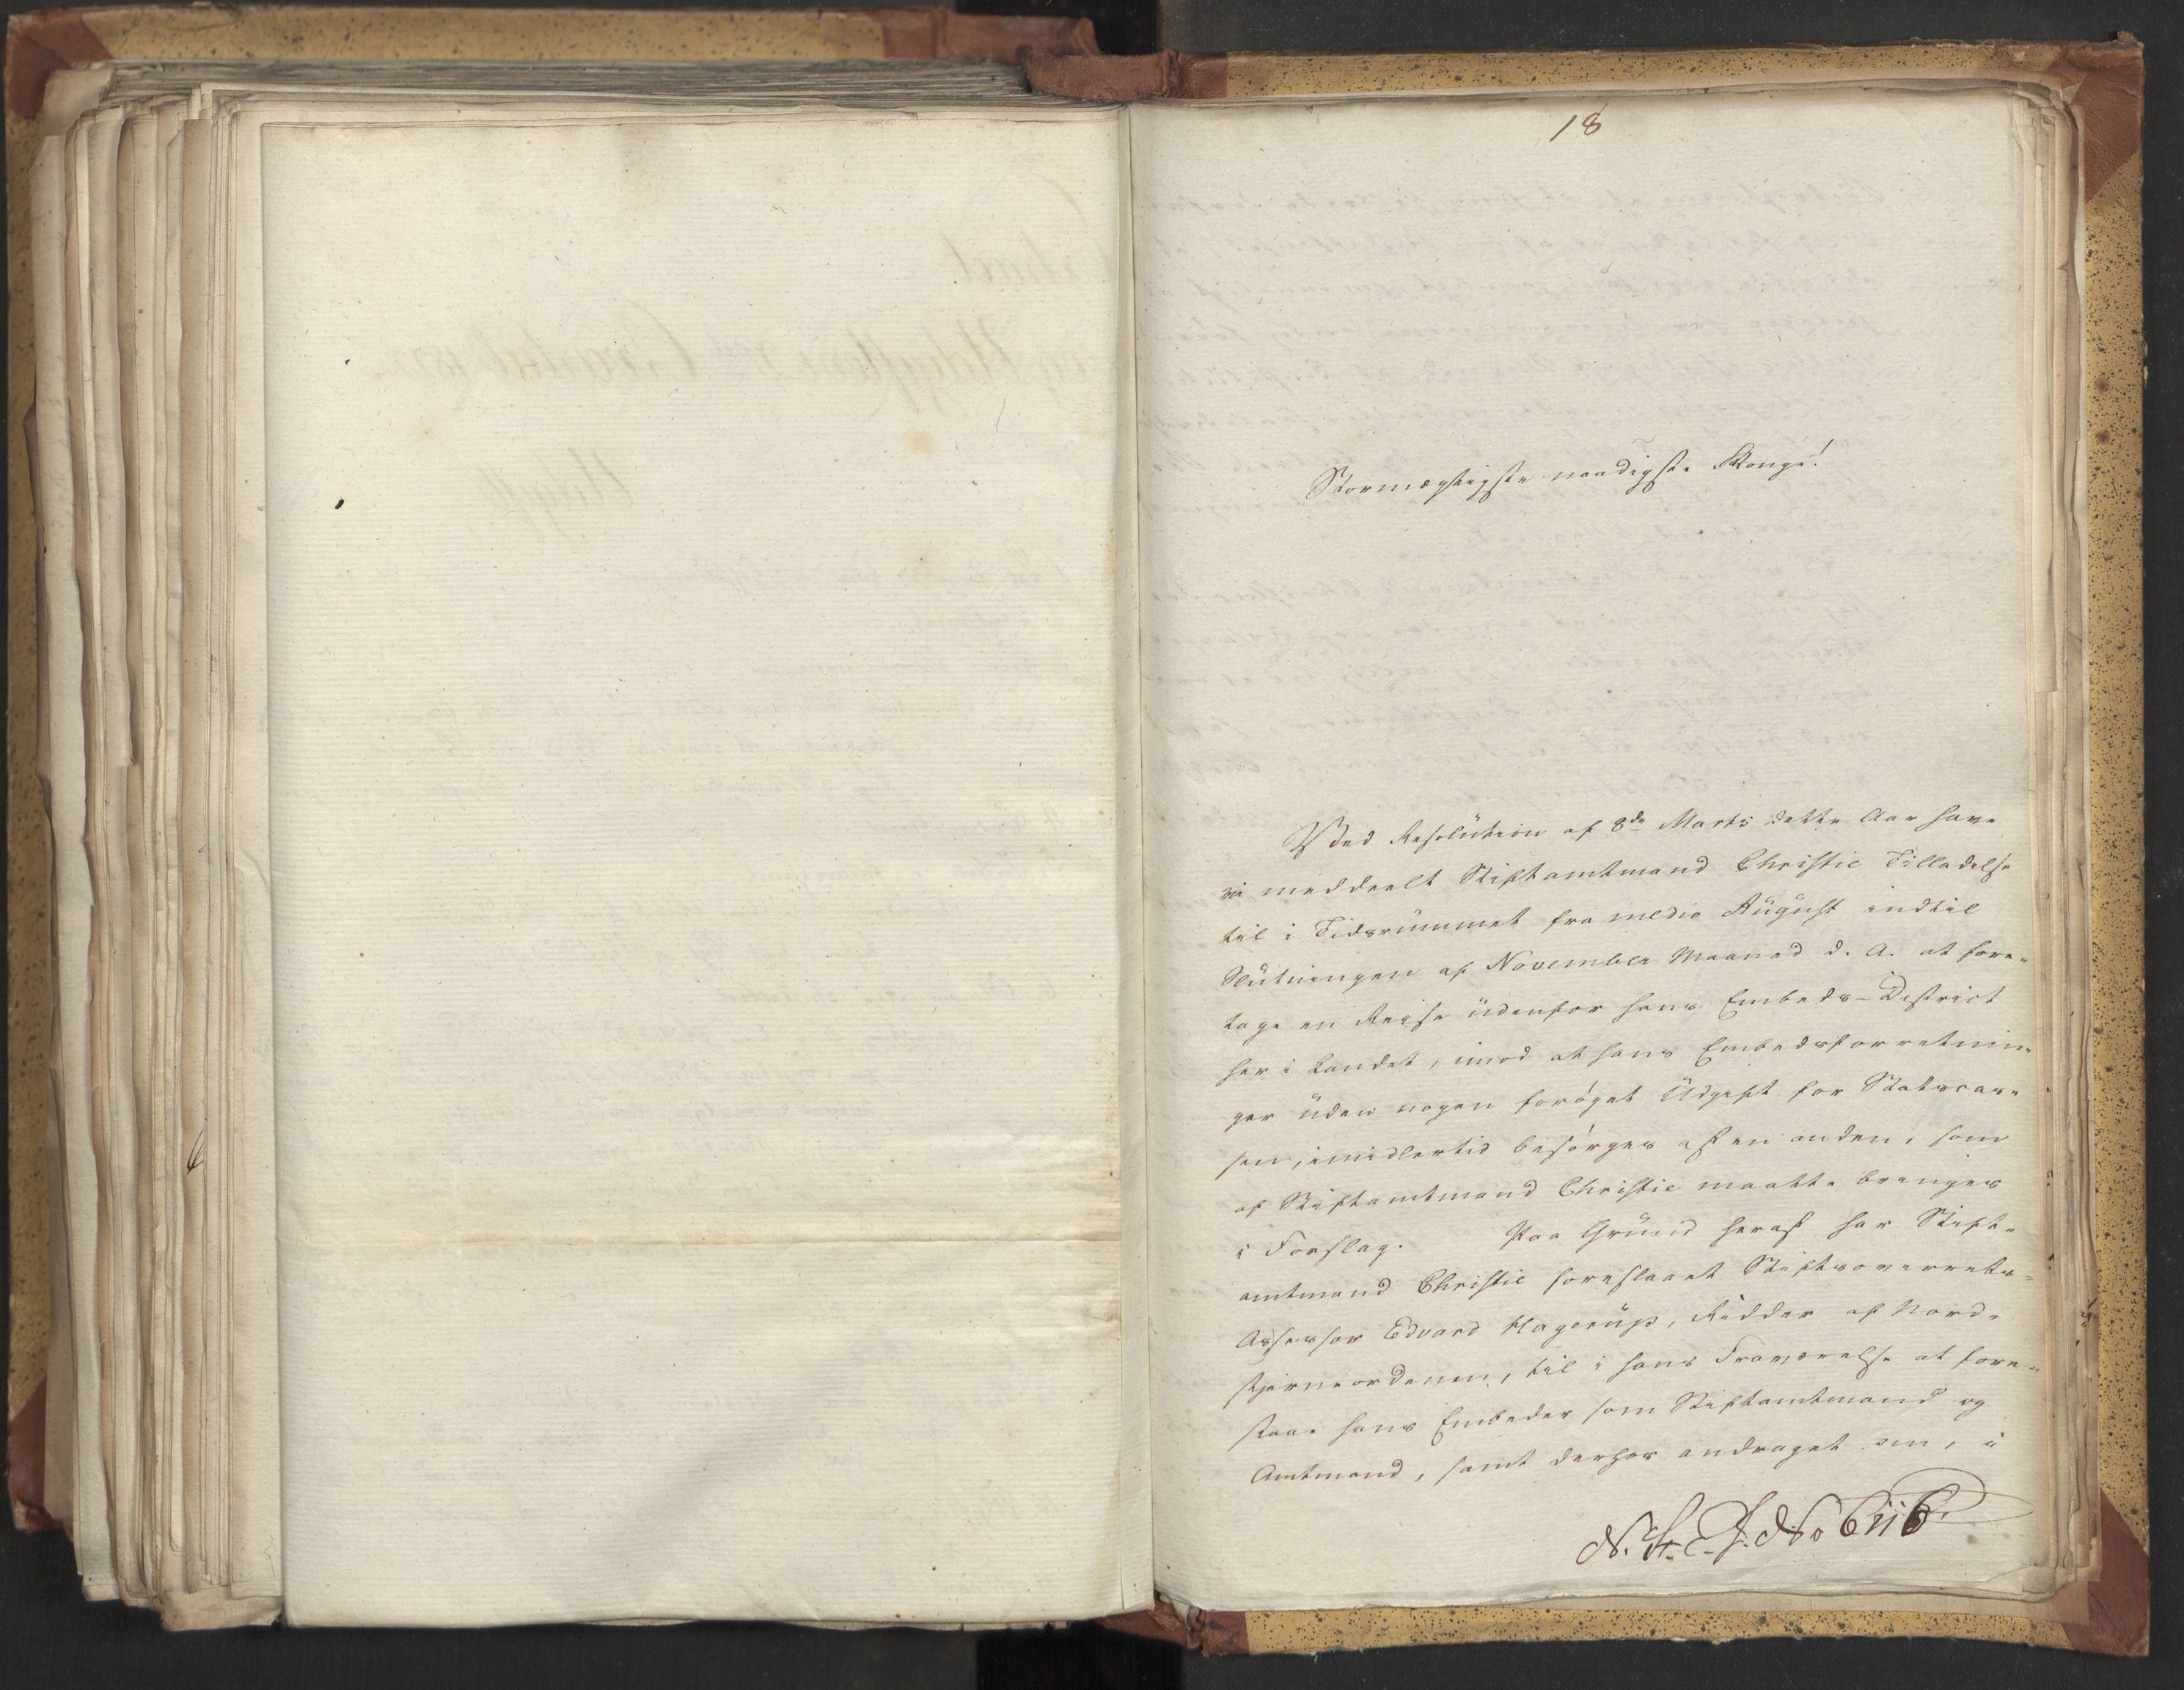 18
Stormægtigste naadigste Konge!
Ved Resolution af 8de Marts dette Aar have
vi meddeelt Stiftamtmand Christie Tilladelse
til i Tidsrummet fra medio August indtil
Slutningen af November Maaned d. A. at fore-
tage en Reise udenfor hans Embeds-District
her i Landet, imod at hans Embedsforretnin-
ger uden nogen forøget Udgift for Statscas-
sen, imidlertid besørges af en anden, som
af Stiftamtmand Christie maatte bringes
i Forslag. Paa Grund heraf har Stift-
amtmand Christie foreslaaet Stiftsoverrets-
Assessor Edvard Hagerup, Ridder af Nord-
stjerneordenen, til i hans Fraværelse at fore-
staae hans Embeder som Stiftamtmand og
Amtmand, samt derhos andraget om, i